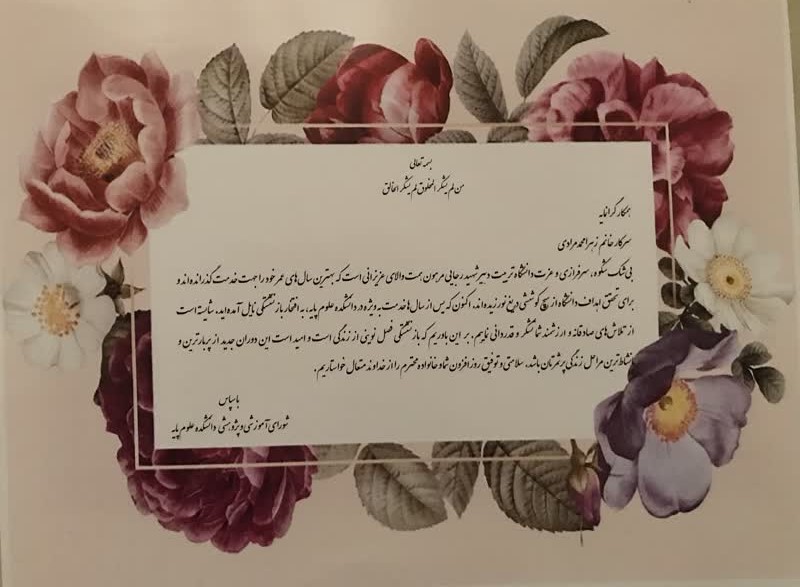 بسمه تعالی
من لم یشکر المخلوق لم یشکر الخالق
همکار گرانمایه
سرکار خانم زهرا محمدمرادی
بی شک شکوه، سرفرازی و عزت دانشگاه تربیت دبیر شهید رجایی مرهون همت والای عزیزانی است که بهترین سال های عمر خود را جهت خدمت گذرانده اند و
برای تحقق اهداف دانشگاه از هیچ کوششی دریغ نورزیده اند. اکنون که پس از سال ها خدمت به ویژه در دانشکده علوم پایه، به افتخار بازنشستگی نایل آمده اید، شایسته است
از تلاش های صادقانه و ارزشمند شما تشکر و قدردانی نماییم. بر این باوریم که بازنشستگی فصل نوینی از زندگی است و امید است این دوران جدید از پربارترین و
بانشاط ترین مراحل زندگی پرثمرتان باشد. سلامتی و توفیق روزافزون شما و خانواده محترم را از خداوند متعال خواستاریم.
با سپاس
شورای آموزشی و پژوهشی دانشکده علوم پایه